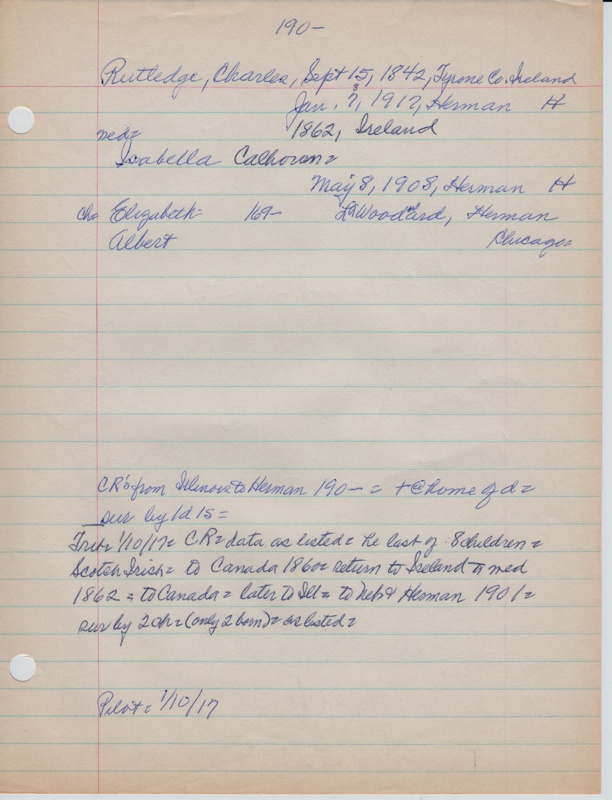 190-
Rutledge, Charles, Sept 15, 1842, Tyrone Co. Ireland
Jan. 7, 1917, Herman H
8
med= 1862, Ireland
Isabella Calhoun=
May 8, 1908, Herman H
ch= Elizabeth= 169- Woodard, Herman
Albert Chicago=
CR's from Illinois to Herman 190- = + @ home of d=
sur by 1d 1s=
Trib= 1/10/17= CR= data as listed= he last of 8 children=
Scotch Irish= to Canada 1860= return to Ireland & med
1862 = to Canada= later to Ill= to Neb & Herman 1901=
sur by 2 ch= (only 2 born)= as listed=
Pilot= 1/10/17